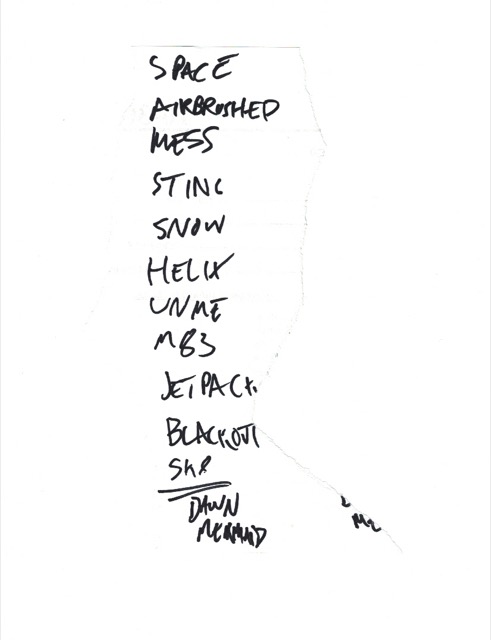 SPACE
AIRBRUSHED
MESS
STING
SNOW
HELIX
UNME
M83
JETPACK
BLACKOUT
SK8
DAWN
MERMAID